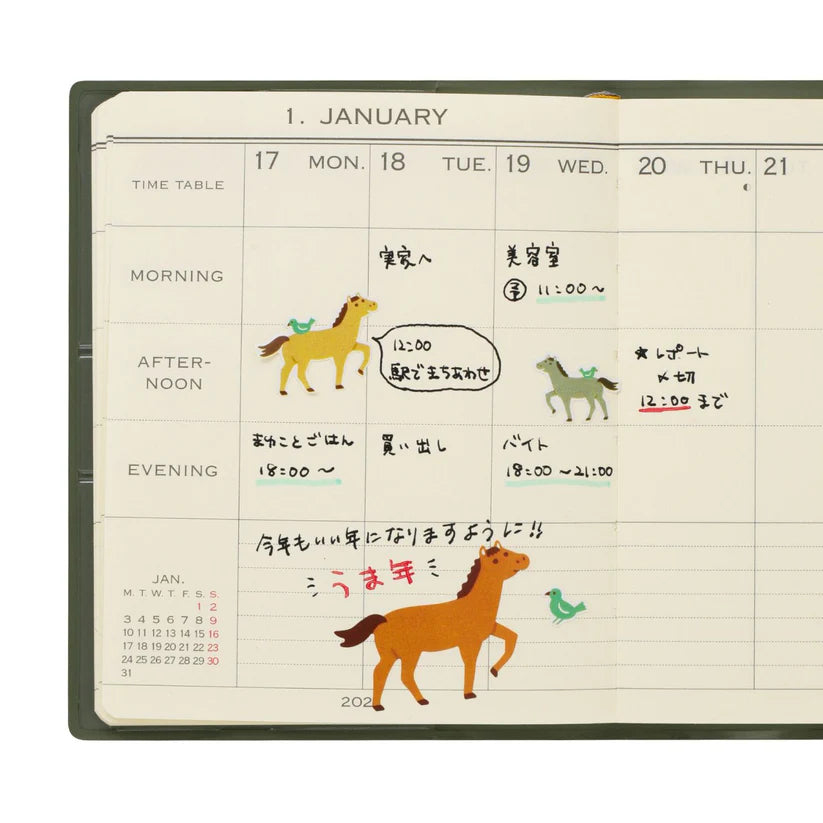 1. JANUARY
TIME TABLE
17 MON.
18 TUE.
19 WED.
20 THU.
21
MORNING
実家へ
美容室
予 11:00~
AFTER-
NOON
12:00
駅でまちあわせ
★レポート
〆切
12:00まで
EVENING
まゆことごはん
18:00~
買い出し
バイト
18:00~21:00
今年もいい年になりますように!!
うま年
JAN.
M. T. W. T. F. S. S.
1 2
3 4 5 6 7 8 9
10 11 12 13 14 15 16
17 18 19 20 21 22 23
24 25 26 27 28 29 30
31
202